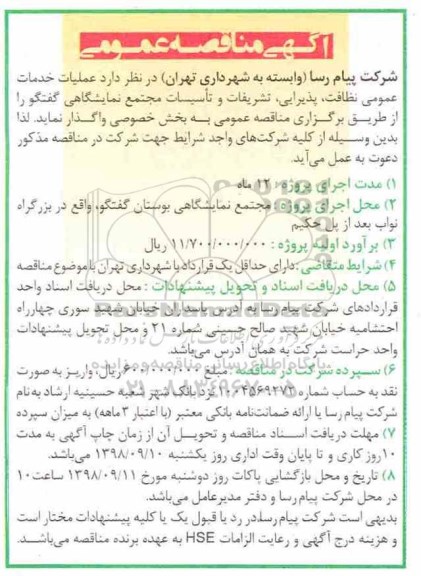 آگهی مناقصه عمومی
شرکت پیام رسا (وابسته به شهرداری تهران) در نظر دارد عملیات خدمات
عمومی نظافت، پذیرایی، تشریفات و تأسیسات مجتمع نمایشگاهی گفتگو را
از طریق برگزاری مناقصه عمومی به بخش خصوصی واگذار نماید. لذا
بدین وسیله از کلیه شرکت‌های واجد شرایط جهت شرکت در مناقصه مذکور
دعوت به عمل می‌آید.
۱) مدت اجرای پروژه: ۱۲ ماه
۲) محل اجرای پروژه: مجتمع نمایشگاهی بوستان گفتگو، واقع در بزرگراه
نواب بعد از پل حکیم
۳) برآورد اولیه پروژه: ۱۱/۷۰۰/۰۰۰/۰۰۰ ریال
۴) شرایط متقاضی: دارای حداقل یک قرارداد با شهرداری تهران با موضوع مناقصه
۵) محل دریافت اسناد و تحویل پیشنهادات: محل دریافت اسناد واحد
قراردادهای شرکت پیام رسا به آدرس پاسداران خیابان شهید سوری چهارراه
احتشامیه خیابان شهید صالح حسینی شماره ۲۱ و محل تحویل پیشنهادات
واحد حراست شرکت به همان آدرس می‌باشد.
۶) سپرده شرکت در مناقصه: مبلغ ریال، واریز به صورت
نقد به حساب شماره نزد بانک شهر شعبه حسینیه ارشاد به نام
شرکت پیام رسا یا ارائه ضمانت‌نامه بانکی معتبر (با اعتبار ۳ماهه) به میزان سپرده
۷) مهلت دریافت اسناد مناقصه و تحویل آن از زمان چاپ آگهی به مدت
۱۰ روز کاری و تا پایان وقت اداری روز یکشنبه ۱۳۹۸/۰۹/۱۰ می‌باشد.
۸) تاریخ و محل بازگشایی پاکات روز دوشنبه مورخ ۱۳۹۸/۰۹/۱۱ ساعت ۱۰
در محل شرکت پیام رسا و دفتر مدیرعامل می‌باشد.
بدیهی است شرکت پیام رسا در رد یا قبول یک یا کلیه پیشنهادات مختار است
و هزینه درج آگهی و رعایت الزامات HSE به عهده برنده مناقصه می‌باشد.